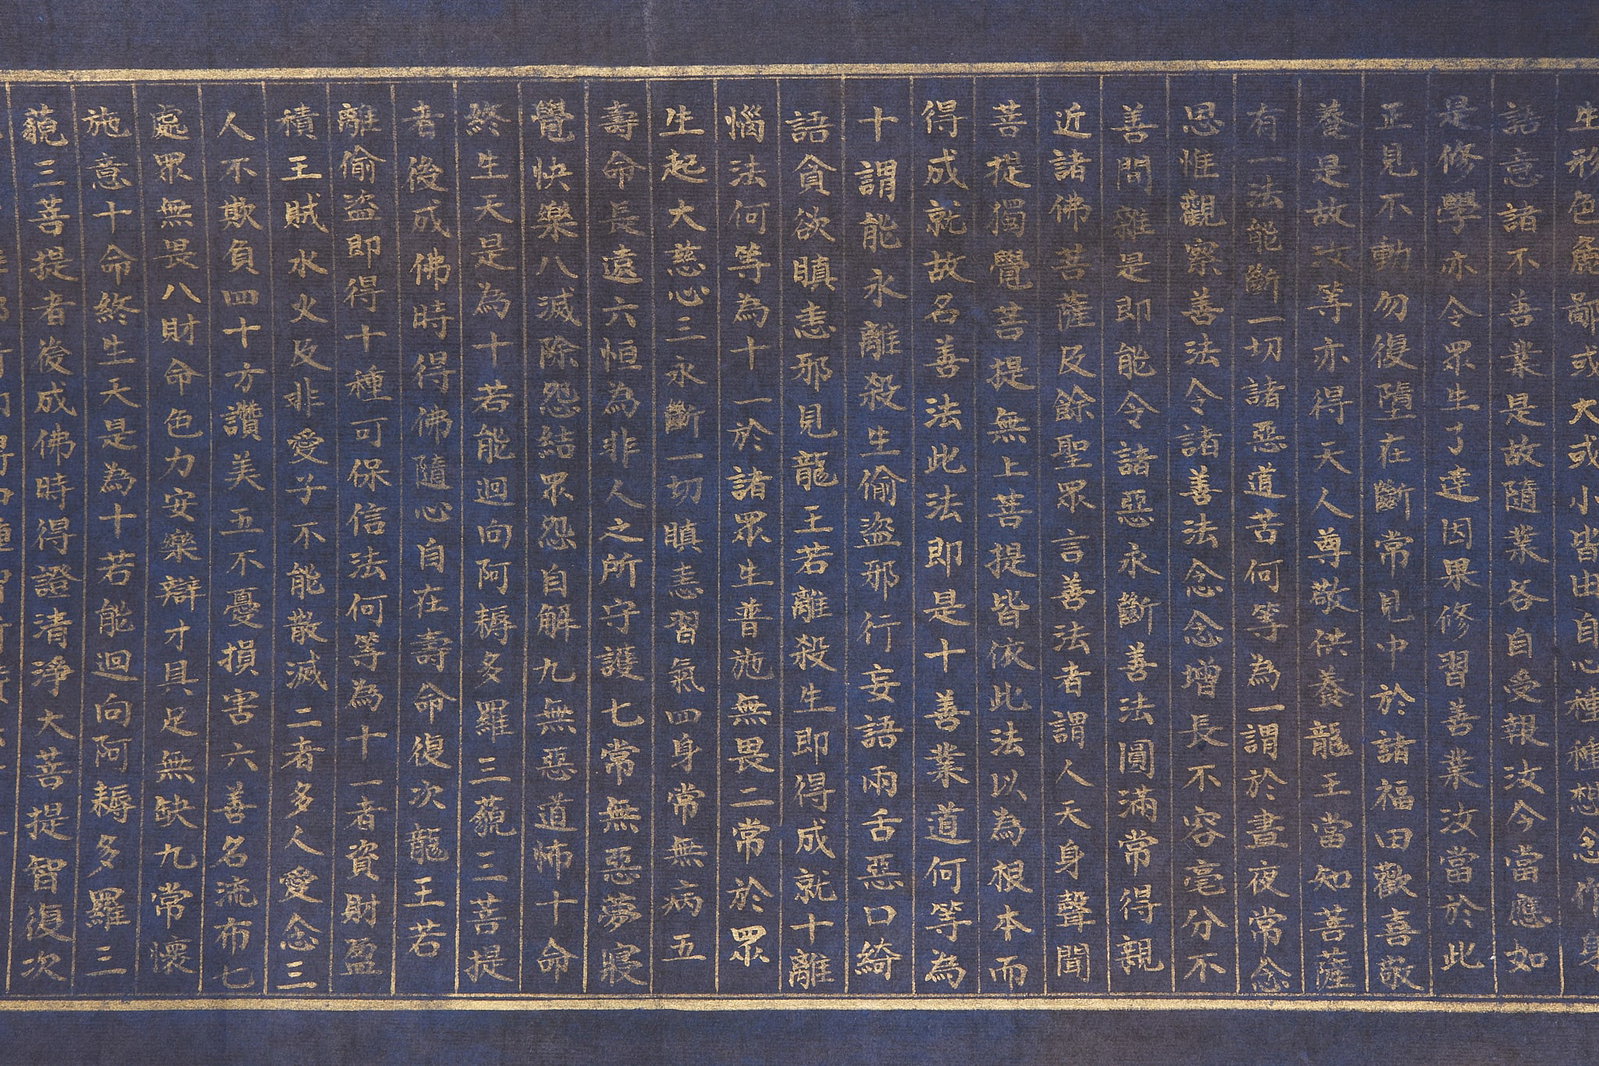 生形色麁鄙或大或小皆由自心種種想念作身
語意諸不善業是故隨業各自受報汝今當應如
是修學亦令眾生了達因果修習善業汝當於此
正見不動勿復墮在斷常見中於諸福田歡喜敬
養是故汝等亦得天人尊敬供養龍王當知菩薩
有一法能斷一切諸惡道苦何等為一謂於晝夜常念
思惟觀察善法令諸善法念念增長不容毫分不
善間雜是即能令諸惡永斷善法圓滿常得親
近諸佛菩薩及餘聖眾言善法者謂人天身聲聞
菩提獨覺菩提無上菩提皆依此法以為根本而
得成就故名善法此法即是十善業道何等為
十謂能永離殺生偷盜邪行妄語兩舌惡口綺
語貪欲瞋恚邪見龍王若離殺生即得成就十離
惱法何等為十一於諸眾生普施無畏二常於眾
生起大慈心三永斷一切瞋恚習氣四身常無病五
壽命長遠六恒為非人之所守護七常無惡夢寢
覺快樂八滅除怨結眾怨自解九無惡道怖十命
終生天是為十若能迴向阿耨多羅三藐三菩提
者後成佛時得佛隨心自在壽命復次龍王若
離偷盜即得十種可保信法何等為十一者資財盈
積王賊水火及非愛子不能散滅二者多人愛念三
人不欺負四十方讚美五不憂損害六善名流布七
處眾無畏八財命色力安樂辯才具足無缺九常懷
施意十命終生天是為十若能迴向阿耨多羅三
藐三菩提者後成佛時得證清淨大菩提智復次